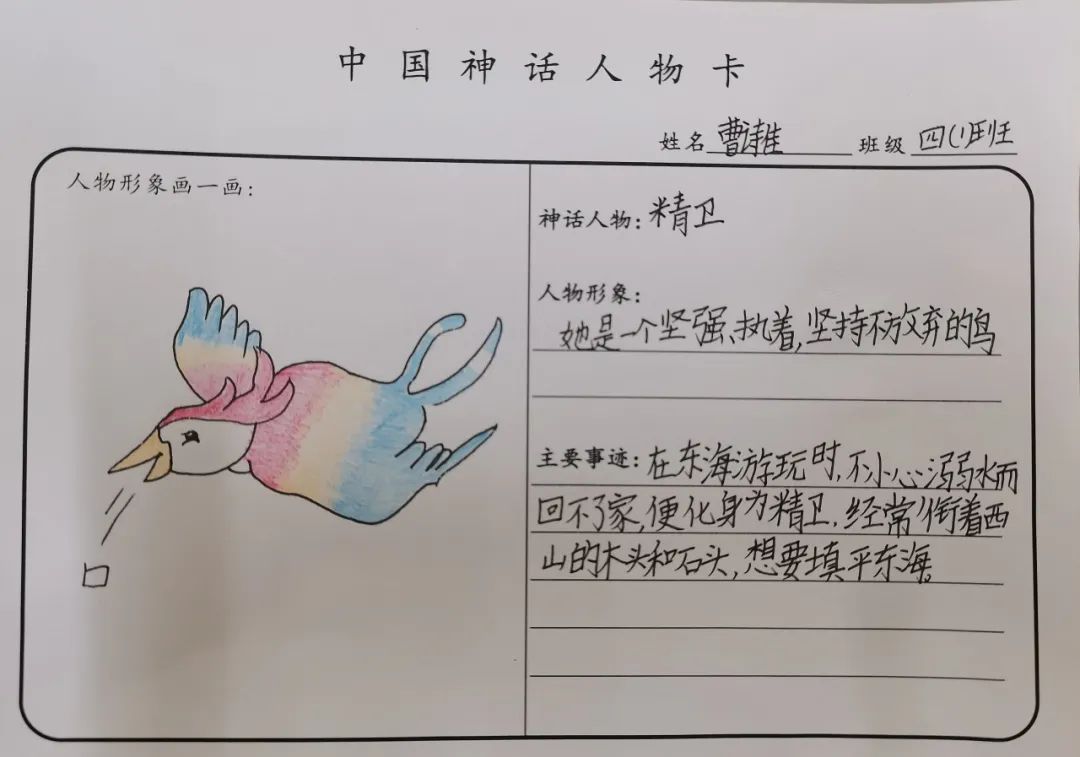 中国神话人物卡
姓名 曹诗佳 班级 四(1)班
人物形象画一画：
神话人物：精卫
人物形象：
她是一个坚强、执着,坚持不放弃的鸟
主要事迹：在东海游玩时,不小心溺弱水而
回不了家,便化身为精卫.经常衔着西
山的木头和石头,想要填平东海。